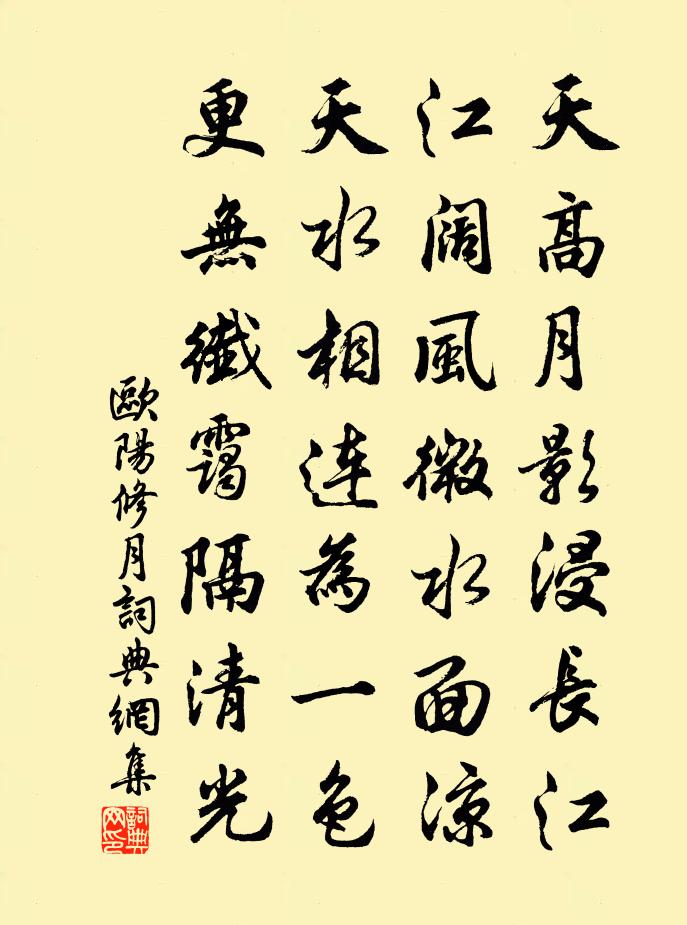 天高月影浸長江
江阔風微水面涼
天水相連為一色
更無纖靄隔清光
歐陽修月詞典網集
詞典网印